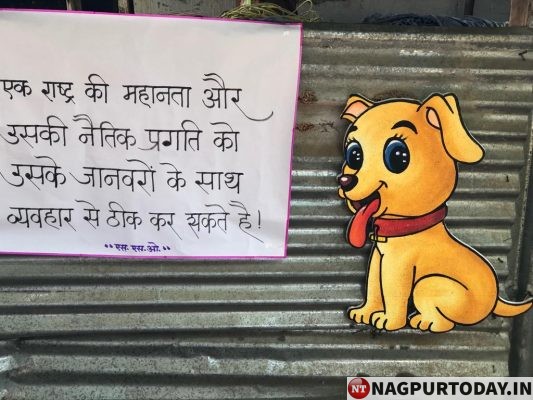 एक राष्ट्र की महानता और
उसकी नैतिक प्रगति को
उसके जानवरों के साथ
व्यवहार से ठीक कर सकते है!
एस. एस. ओ.
NT NAGPURTODAY.IN